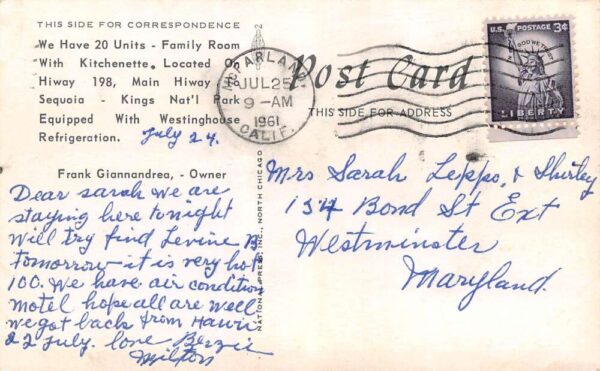 THIS SIDE FOR CORRESPONDENCE
We Have 20 Units - Family Room
With Kitchenette. Located
Hiway 198, Main Hiway
Sequoia - Kings Nat'l Park
Equipped With Westinghouse
Refrigeration.
July 24.
Frank Giannandrea, - Owner
Dear Sarah we are
staying here tonight
will try find Levine B
tomorrow it is very hot
100. We have air condition
motel hope all are well
we got back from Hawii
22 july. love Berzie
Milton
NATIONAL PRESS, INC., NORTH CHICAGO
JUL 25
9 - AM
1961
CALIF.
Post Card
THIS SIDE FOR ADDRESS
U.S. POSTAGE 3¢
IN GOD WE TRUST
LIBERTY
Mrs Sarah Leppo, & Shirley
154 Bond St Ext
Westminster
Maryland.